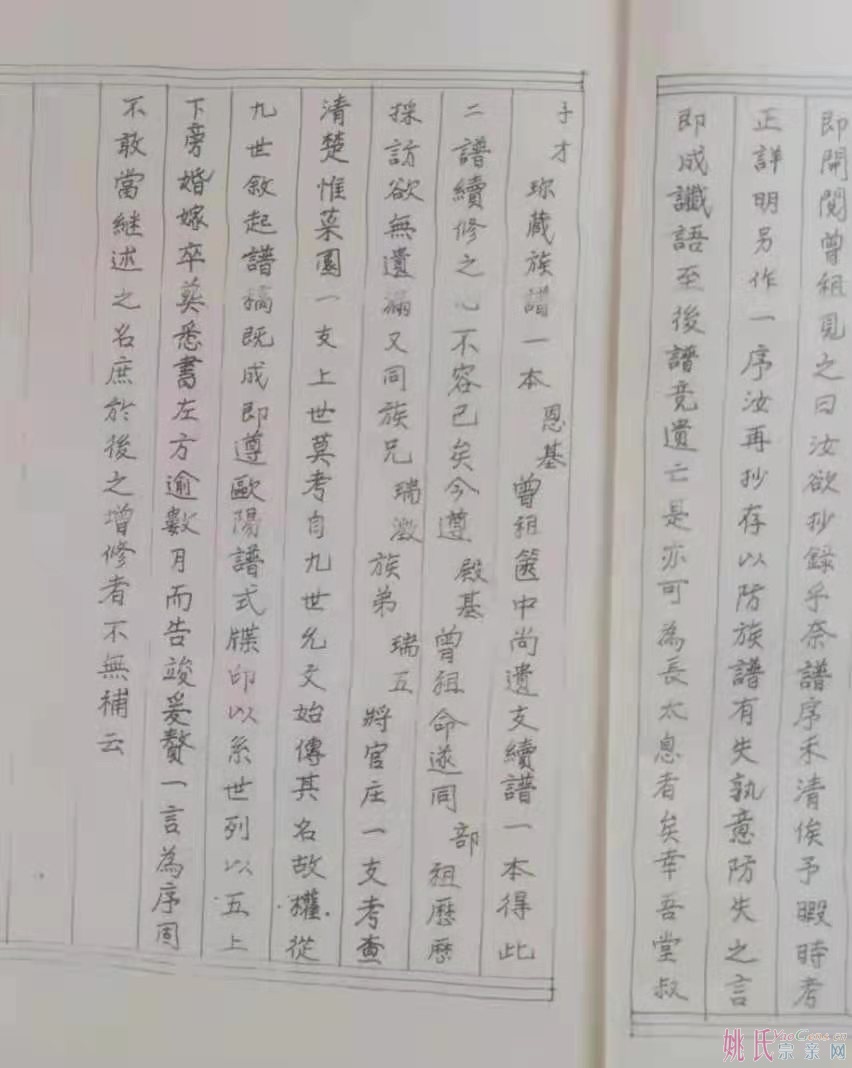 即開閱曾祖見之曰汝欲抄錄乎奈譜序未清俟予暇時考
正詳明另作一序汝再抄存以防族譜有失孰意防失之言
即成讖語至後譜竟遺亡是亦可為長太息者矣幸吾堂叔
子才珎蔵族譜一本恩基曾祖篋中尚遺支續譜一本得此
二譜續修之心不容已矣今遵殿基曾祖命遂同部祖歷歷
採訪欲無遺漏又同族兄瑞激族弟瑞五將官庄一支考查
清楚惟菜園一支上世莫考自九世允文始傳其名故權從
九世敘起譜稿既成即遵歐陽譜式牒印以系世列以五上
下旁婚嫁卒葵悉書左方逾數月而告竣爰贅一言為序固
不敢當継述之名庶於後之增修者不無補云
姚氏宗亲网